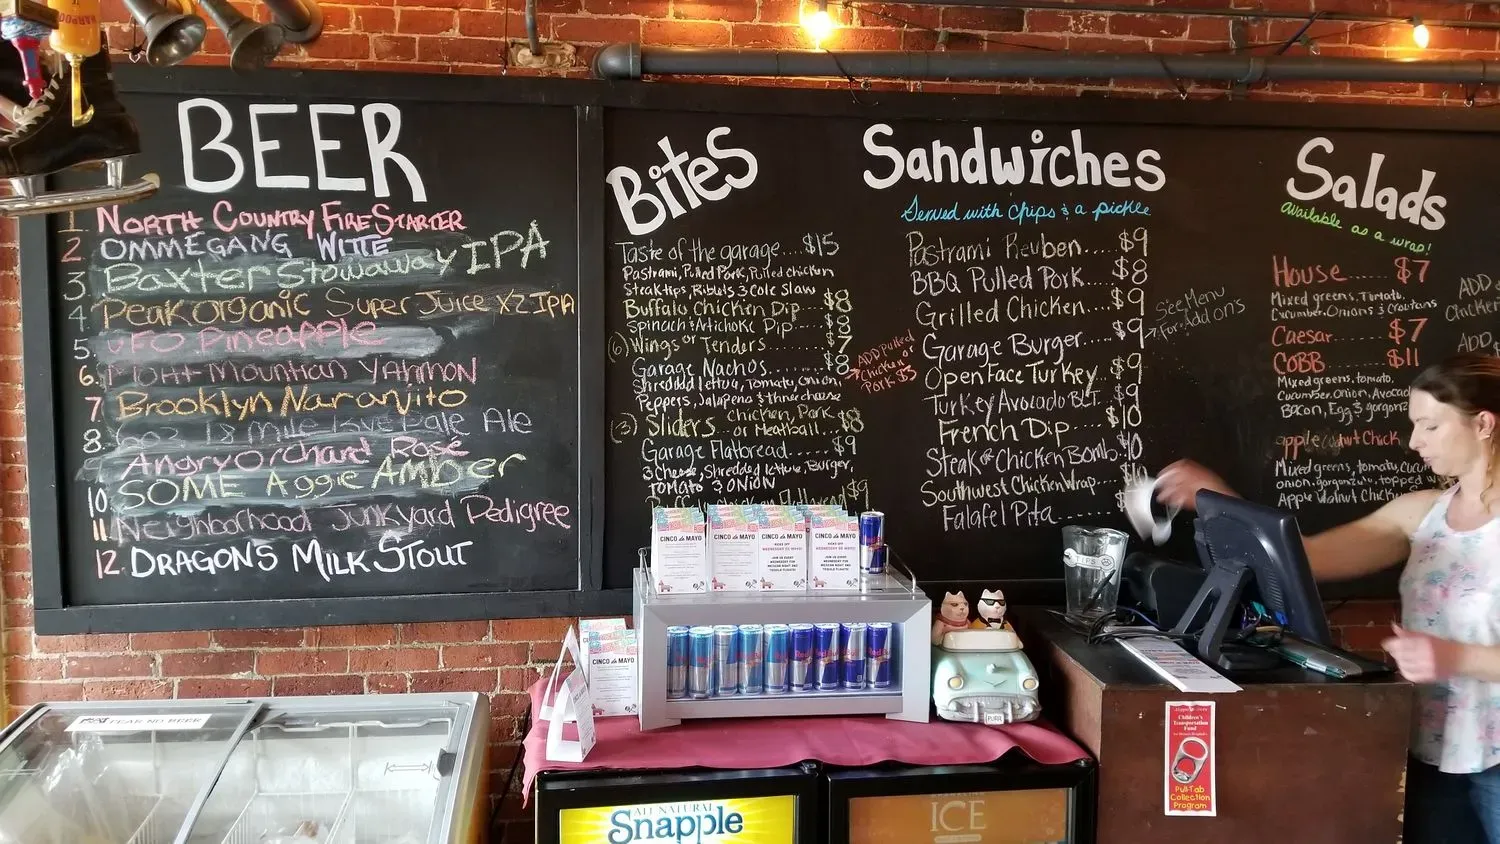 BEER
1. NORTH COUNTRY FIRESTARTER
2 OMMEGANG WITTE
3. Baxter Stowaway IPA
4. Peak organic Super Juice X2 IPA
5. UFO Pineapple
6. Mountain
7. Brooklyn Naranjito
8. Mile Pale Ale
Angry Orchard Rosé
10. SOME Aggie AMBER
11 Neighborhood Junkyard Pedigree
12. DRAGONS MILK STOUT
Bites
Taste of the garage....$15
Pastrami, Pulled Pork, Pulled chicken
Steaktips, & Cole Slaw
Buffalo Chicken Dip..$8
Spinach & Artichoke Dip..$8
(6) Wings or Tenders.......$7
Garage Nachos.......$8
Shredded lettuce, Tomato, Onion,
Peppers, Jalapeño & three cheese
ADD Pulled
Chicken or
Pork $3
(3) Sliders chicken, Pork
or Meatball...$8
Garage Flatbread.....$9
3 Cheese, Shredded lettuce, Burger,
Tomato & ONION
$9
Sandwiches
Served with chips & a pickle
Pastrami Reuben.....$9
BBQ Pulled Pork....$8
Grilled Chicken....$9
Garage Burger.....$9
See Menu
for Add on's
Open Face Turkey...$9
Turkey Avocado BLT.$9
French Dip....$10
Steak or Chicken Bomb.$10
Southwest Chicken Wrap...$10
Falafel Pita
Salads
available as a wrap!
House......$7
Mixed greens, Tomato,
Cucumber, Onions & Croutons
Caesar.....$7
COBB......$11
Mixed greens, tomato,
Cucumber, Onion, Avocado
Bacon, Egg &
ADD
Chicken
ADD
apple walnut Chick
Mixed greens, tomato,
onion, topped
Apple Walnut
CINCO de MAYO
CINCO de MAYO
CINCO de MAYO
CINCO de MAYO
CINCO de MAYO
TIPS
FEAR NO BEER
Red Bull
PURR
Children's
Transportation
Fund
Pull-Tab
Collection
Program
ALL NATURAL
Snapple
ICE